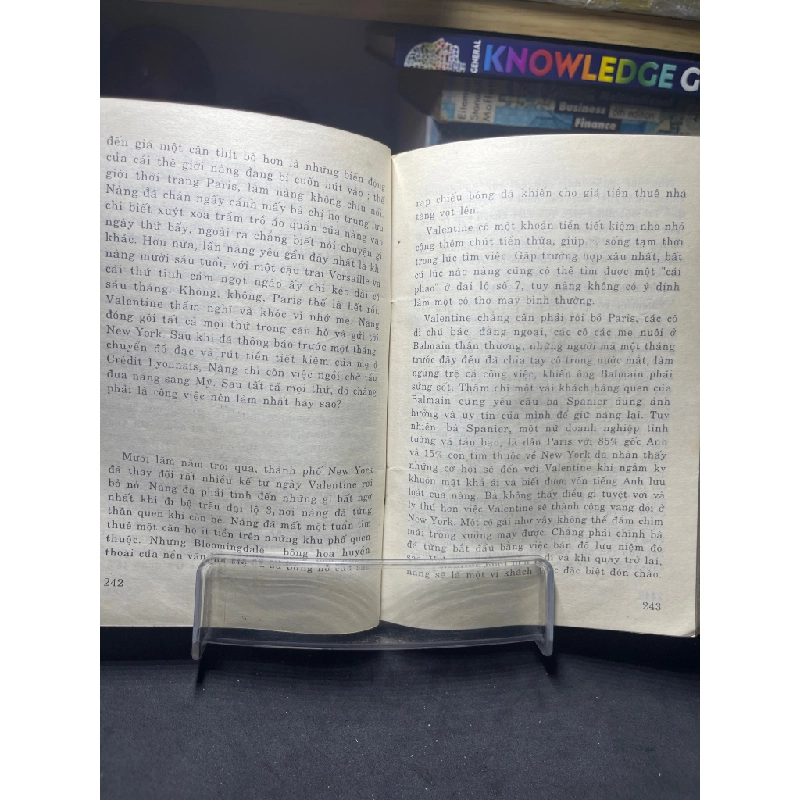 GENERAL KNOWLEDGE G
Business
Finance
5th edition
đến giá một cân thịt bò hơn là những biến động
của cái thế giới nàng đang bị cuốn hút vào : thế
giới thời trang Paris, làm nàng không chịu nổi.
Nàng đã chán ngấy cảnh mấy bà chị họ trung lưu
chỉ biết xuýt xoa trầm trồ áo quần của nàng vào
ngày thứ bảy, ngoài ra chẳng biết nói chuyện gì
khác. Hơn nữa, lần nàng yêu gần đây nhất là khi
nàng mười sáu tuổi, với một cậu trai Versaille và
cái thứ tình cảm ngọt ngào ấy chỉ kéo dài có
sáu tháng. Không, không, Paris thế là hết rồi.
Valentine thầm nghĩ và khóc vì nhớ mẹ. Nàng
đóng gói tất cả mọi thứ trong căn hộ và gửi tới
New York. Sau khi đã thông báo trước một tháng
chuyển đồ đạc và rút tiền tiết kiệm của mẹ ở
Crédit Lyonnais, Nàng chỉ còn việc ngồi chờ tàu
đưa nàng sang Mỹ. Sau tất cả mọi thứ, đó chẳng
phải là công việc nên làm nhất hay sao?
Mười lăm năm trôi qua, thành phố New York
đã thay đổi rất nhiều kể từ ngày Valentine rời
bỏ nó. Nàng đã phải tính đến những gì bất ngờ
nhất khi đi bộ trên đại lộ 3, nơi nàng đã từng
thân quen khi còn bé. Nàng đã mất một tuần tìm
thuê một căn hộ ít tiền trên những khu phố quen
thuộc. Nhưng Bloomingdale bông hoa huyền
thoại của nền văn
242
rạp chiếu bóng đã khiến cho giá tiền thuê nhà
tăng vọt lên.
Valentine có một khoản tiền tiết kiệm nho nhỏ
cộng thêm chút tiền thừa, giúp sống tạm thời
trong lúc tìm việc. Gặp trường hợp xấu nhất, bất
cứ lúc nào nàng cũng có thể tìm được một "cái
phao" ở đại lộ số 7, tuy nàng không có ý định
làm một cô thợ may bình thường.
Valentine chẳng cần phải rời bỏ Paris, các cô
dì chú bác đằng ngoại, các cô các mẹ nuôi ở
Balmain thân thương, những người mà một tháng
trước đây đều đã chia tay cô trong nước mắt, làm
ngưng trệ cả công việc, khiến ông Balmain phải
sửng sốt. Thậm chí một vài khách hàng quen của
Balmain cũng yêu cầu bà Spanier dùng ảnh
hưởng và uy tín của mình để giữ nàng lại. Tuy
nhiên, bà Spanier, một nữ doanh nghiệp tinh
tường và táo bạo, là dân Paris với 85% gốc Anh
và 15% con tim thuộc về New York đã nhận thấy
những cơ hội bỏ đến với Valentine khi ngắm kỹ
khuôn mặt khả ái và biết được vốn tiếng Anh lưu
loát của nàng. Bà không thấy điều gì tuyệt vời và
lý thú hơn việc Valentine sẽ thành công vang dội ở
New York. Một cô gái như vậy không thể đắm chìm
mãi trong xưởng may được. Chẳng phải chính bà
đã từng bắt đầu bằng việc bán đồ lưu niệm đó
sao. đi và khi quay trở lại,
nàng sẽ là một vị khách được đặc biệt đón chào.
243